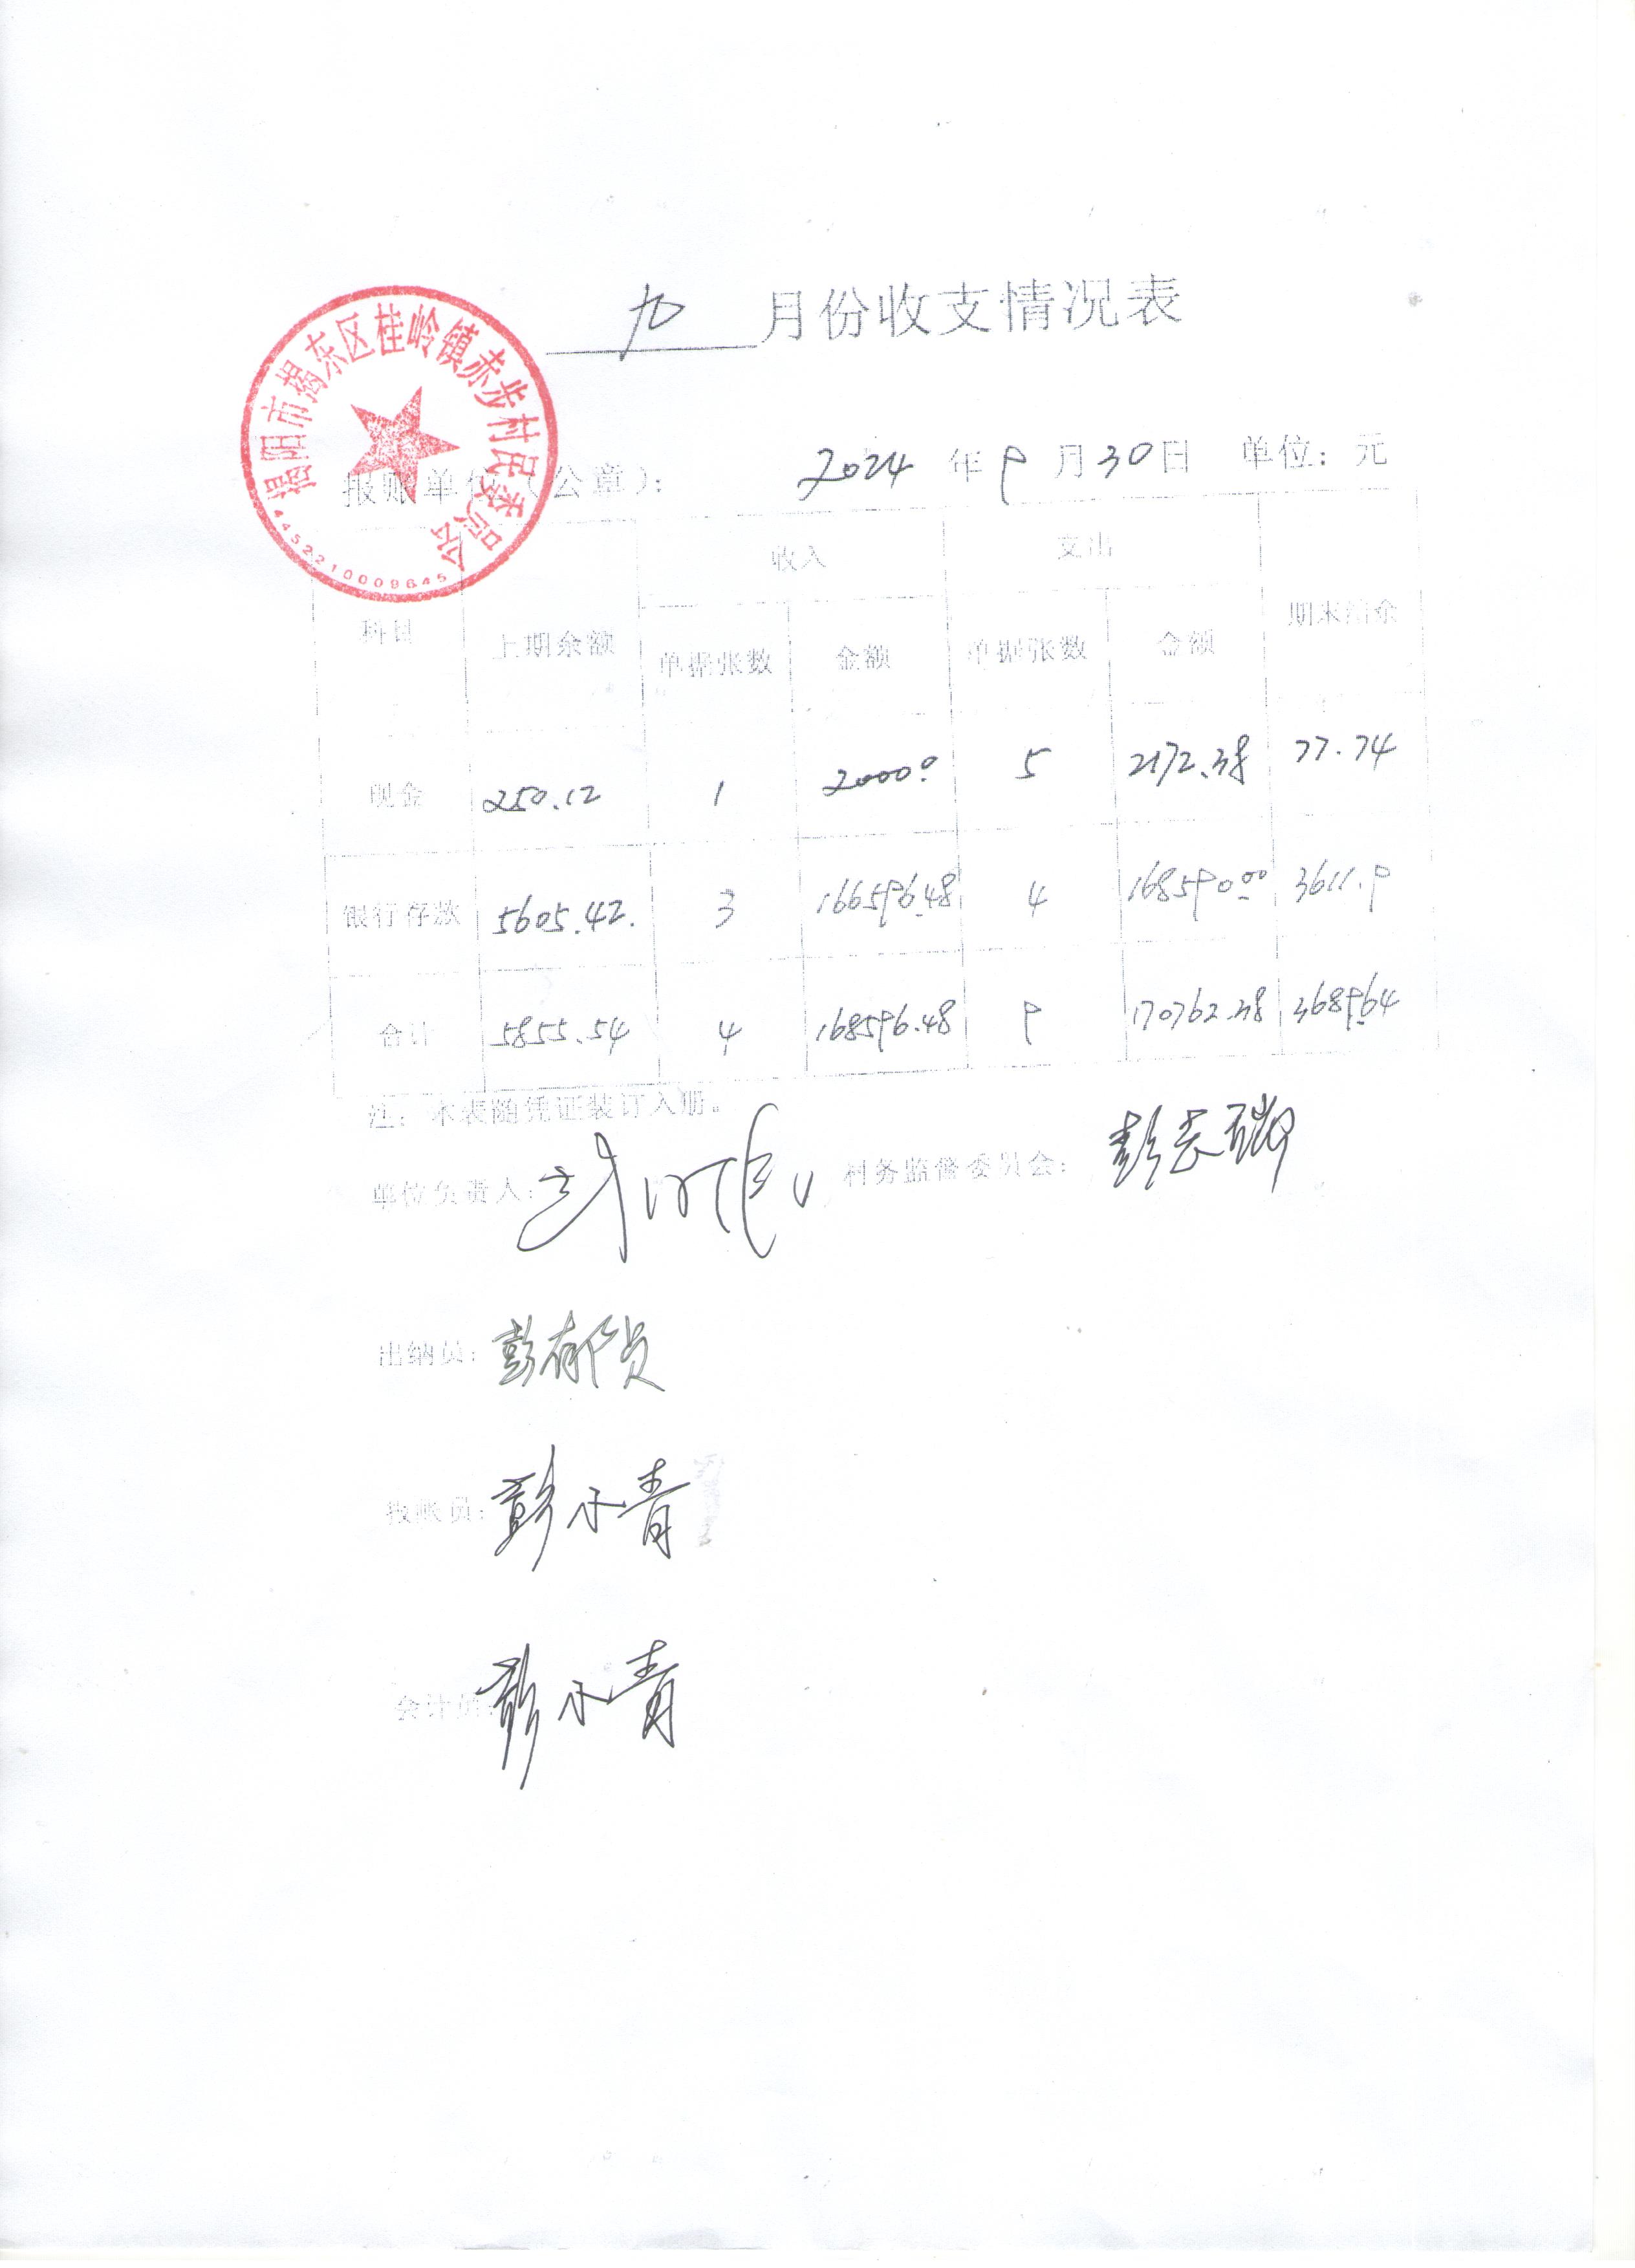 九月份收支情况表
揭阳市揭东区桂岭镇赤步村民委员会
4452210009645
报账单位(公章): 2024年9月30日 单位:元
科目 上期余额 收入 支出 期末结余
单据张数 金额 单据张数 金额
现金 250.12 1 2000.0 5 2172.38 77.74
银行存款 5605.42. 3 166596.48 4 168590.00 3611.9
合计 5855.54 4 168596.48 9 170762.38 3689.64
注:本表随凭证装订入册。
单位负责人: 村务监督委员会: 彭
出纳员: 彭有
报账员: 彭小青
会计员: 彭小青